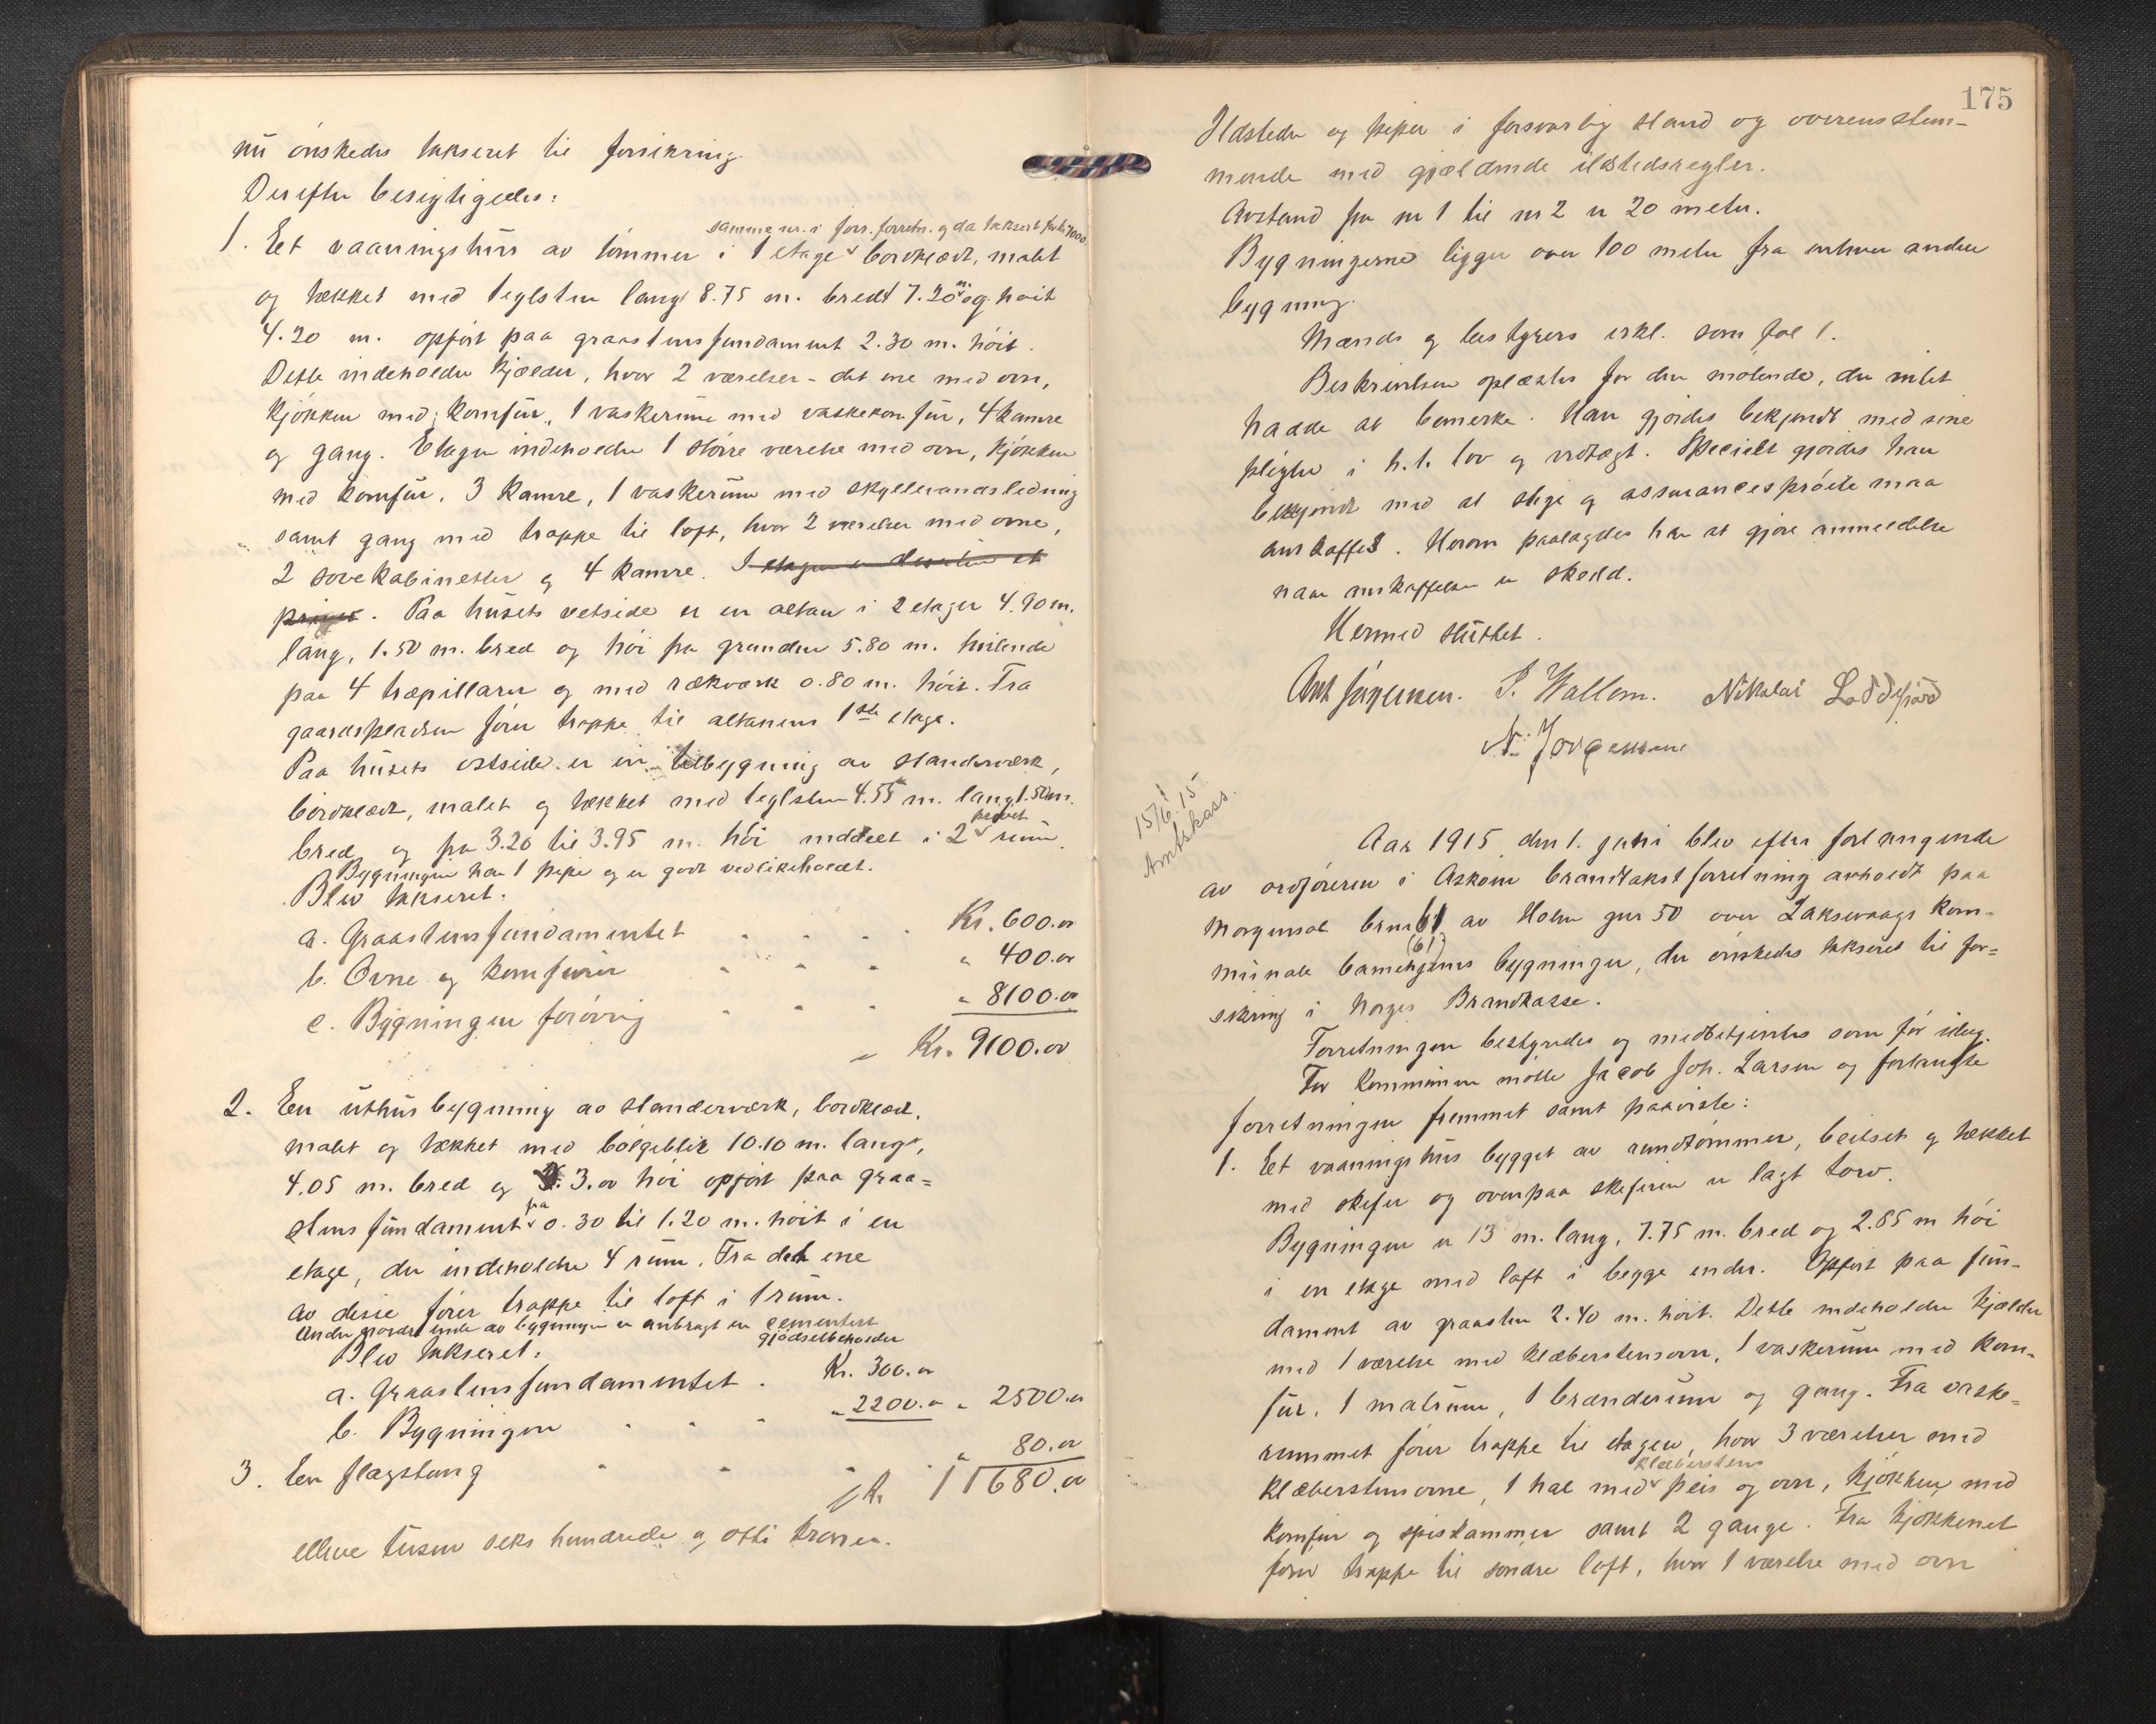 nu ønskedes takseret til forsikring.
Derefter besigtigedes:
samme nr. i forr. forretn. og da takseret for kr. 7000.
1. Eet vaaningshus av tømmer i 1 etage bordklædt, malet
og tækket med teglsten langt 8.75 m. bredt 7.20 m. og høit
4.20 m. opført paa graastensfundament 2.30 m. høit.
Dette indeholder kjælder, hvor 2 værelser - det ene med ovn,
kjøkken med komfur, 1 vaskerum med vaskekomfur, 4 kamre
og gang. Etagen indeholder 1 større værelse med ovn, kjøkken
med komfur, 3 kamre, 1 vaskerum med skyllevandsledning
samt gang med trappe til loft, hvor 2 værelser med ovne,
2 sovekabinetter og 4 kamre. I etagen er desuten et
privet. Paa husets vestside er en altan i 2 etager 4.90 m.
lang, 1.50 m. bred og høi fra grunden 5.80 m. hvilende
paa 4 træpillarer og med rækværk 0.80 m. høit. Fra
gaardspladsen fører trappe til altanens 1ste etage.
Paa husets østside er en tilbygning av standerværk,
bordklædt, malet og tækket med teglsten 4.55 m. lang, 1.50 m.
bred og fra 3.20 til 3.95 m. høi inddelt i 2 privet rum.
Bygningen har 1 pipe og er godt vedlikeholdt.
Blev takseret:
a. Graastensfundamentet . . . . Kr. 600.00
b. Ovne og komfurer . . . " 400.00
c. Bygningen forøvrig . . . " 8100.00
" Kr. 9100.00
2. Een uthusbygning av standerværk, bordklædt,
malet og tækket med bølgeblik 10.10 m. lang,
4.05 m. bred og 3.00 høi opført paa graa=
stensfundament fra 0.30 til 1.20 m. høit i en
etage, der indeholder 4 rum. Fra det ene
av disse fører trappe til loft i 1 rum.
Under nordre ende av bygningen er anbragt en cementert
gjødselbeholder
Blev takseret:
a. Graastensfundamentet . Kr. 300.00
b. Bygningen . . . " 2200.00 " 2500.00
3. En flagstang . . . . " 80.00
Kr. 11680.00
elleve tusen seks hundrede og otti kroner.
175
Ildsteder og piper i forsvarlig stand og overensstem-
mende med gjældende ildstedsregler.
Avstand fra nr 1 til nr 2 er 20 meter.
Bygningerne ligger over 100 meter fra enhver anden
bygning.
Mænds og bestyrers erkl. som fol 1.
Beskrivelsen oplæstes for den møtende, der intet
hadde at bemerke. Han gjordes bekjendt med sine
pligter i h.t. lov og vedtægt. Specielt gjordes han
bekjendt med at stige og assurancesprøite maa
anskaffes. Herom paalagdes han at gjøre anmeldelse
naar anskaffelsen er skedd.
Hermed sluttet.
Ant Jørgensen. S. Wallem. Nikolai Loddefjord
N. Jørgensen
15/6 15
Amtskass.
Aar 1915 den 1. juni blev efter forlangende
av ordføreren i Askøen brandtakstforretning avholdt paa
Morgensol brnr 61 (61) av Holen gnr 50 over Laksevaags kom-
munale barnehjems bygninger, der ønskedes takseret til for=
sikring i Norges Brandkasse.
Forretningen bestyredes og medbetjentes som før idag.
For kommunen møtte Jacob Joh. Larsen og forlangte
forretningen fremmet samt paaviste:
1. Eet vaaningshus bygget av rundtømmer, beitset og tækket
med skifer og ovenpaa skiferen er lagt torv.
Bygningen er 13 m. lang, 7.75 m. bred og 2.85 m høi
i en etage med loft i begge ender. Opført paa fun-
dament av graasten 2.40 m. høit. Dette indeholder kjælder
med 1 værelse med klæberstensovn, 1 vaskerum med kom-
fur, 1 matrum, 1 brænderum og gang. Fra vaske=
rummet fører trappe til etagen, hvor 3 værelser med
klæberstensovne, 1 hal med klæberstens peis og ovn, kjøkken med
komfur og spiskammer samt 2 gange. Fra kjøkkenet
fører trappe til søndre loft, hvor 1 værelse med ovn